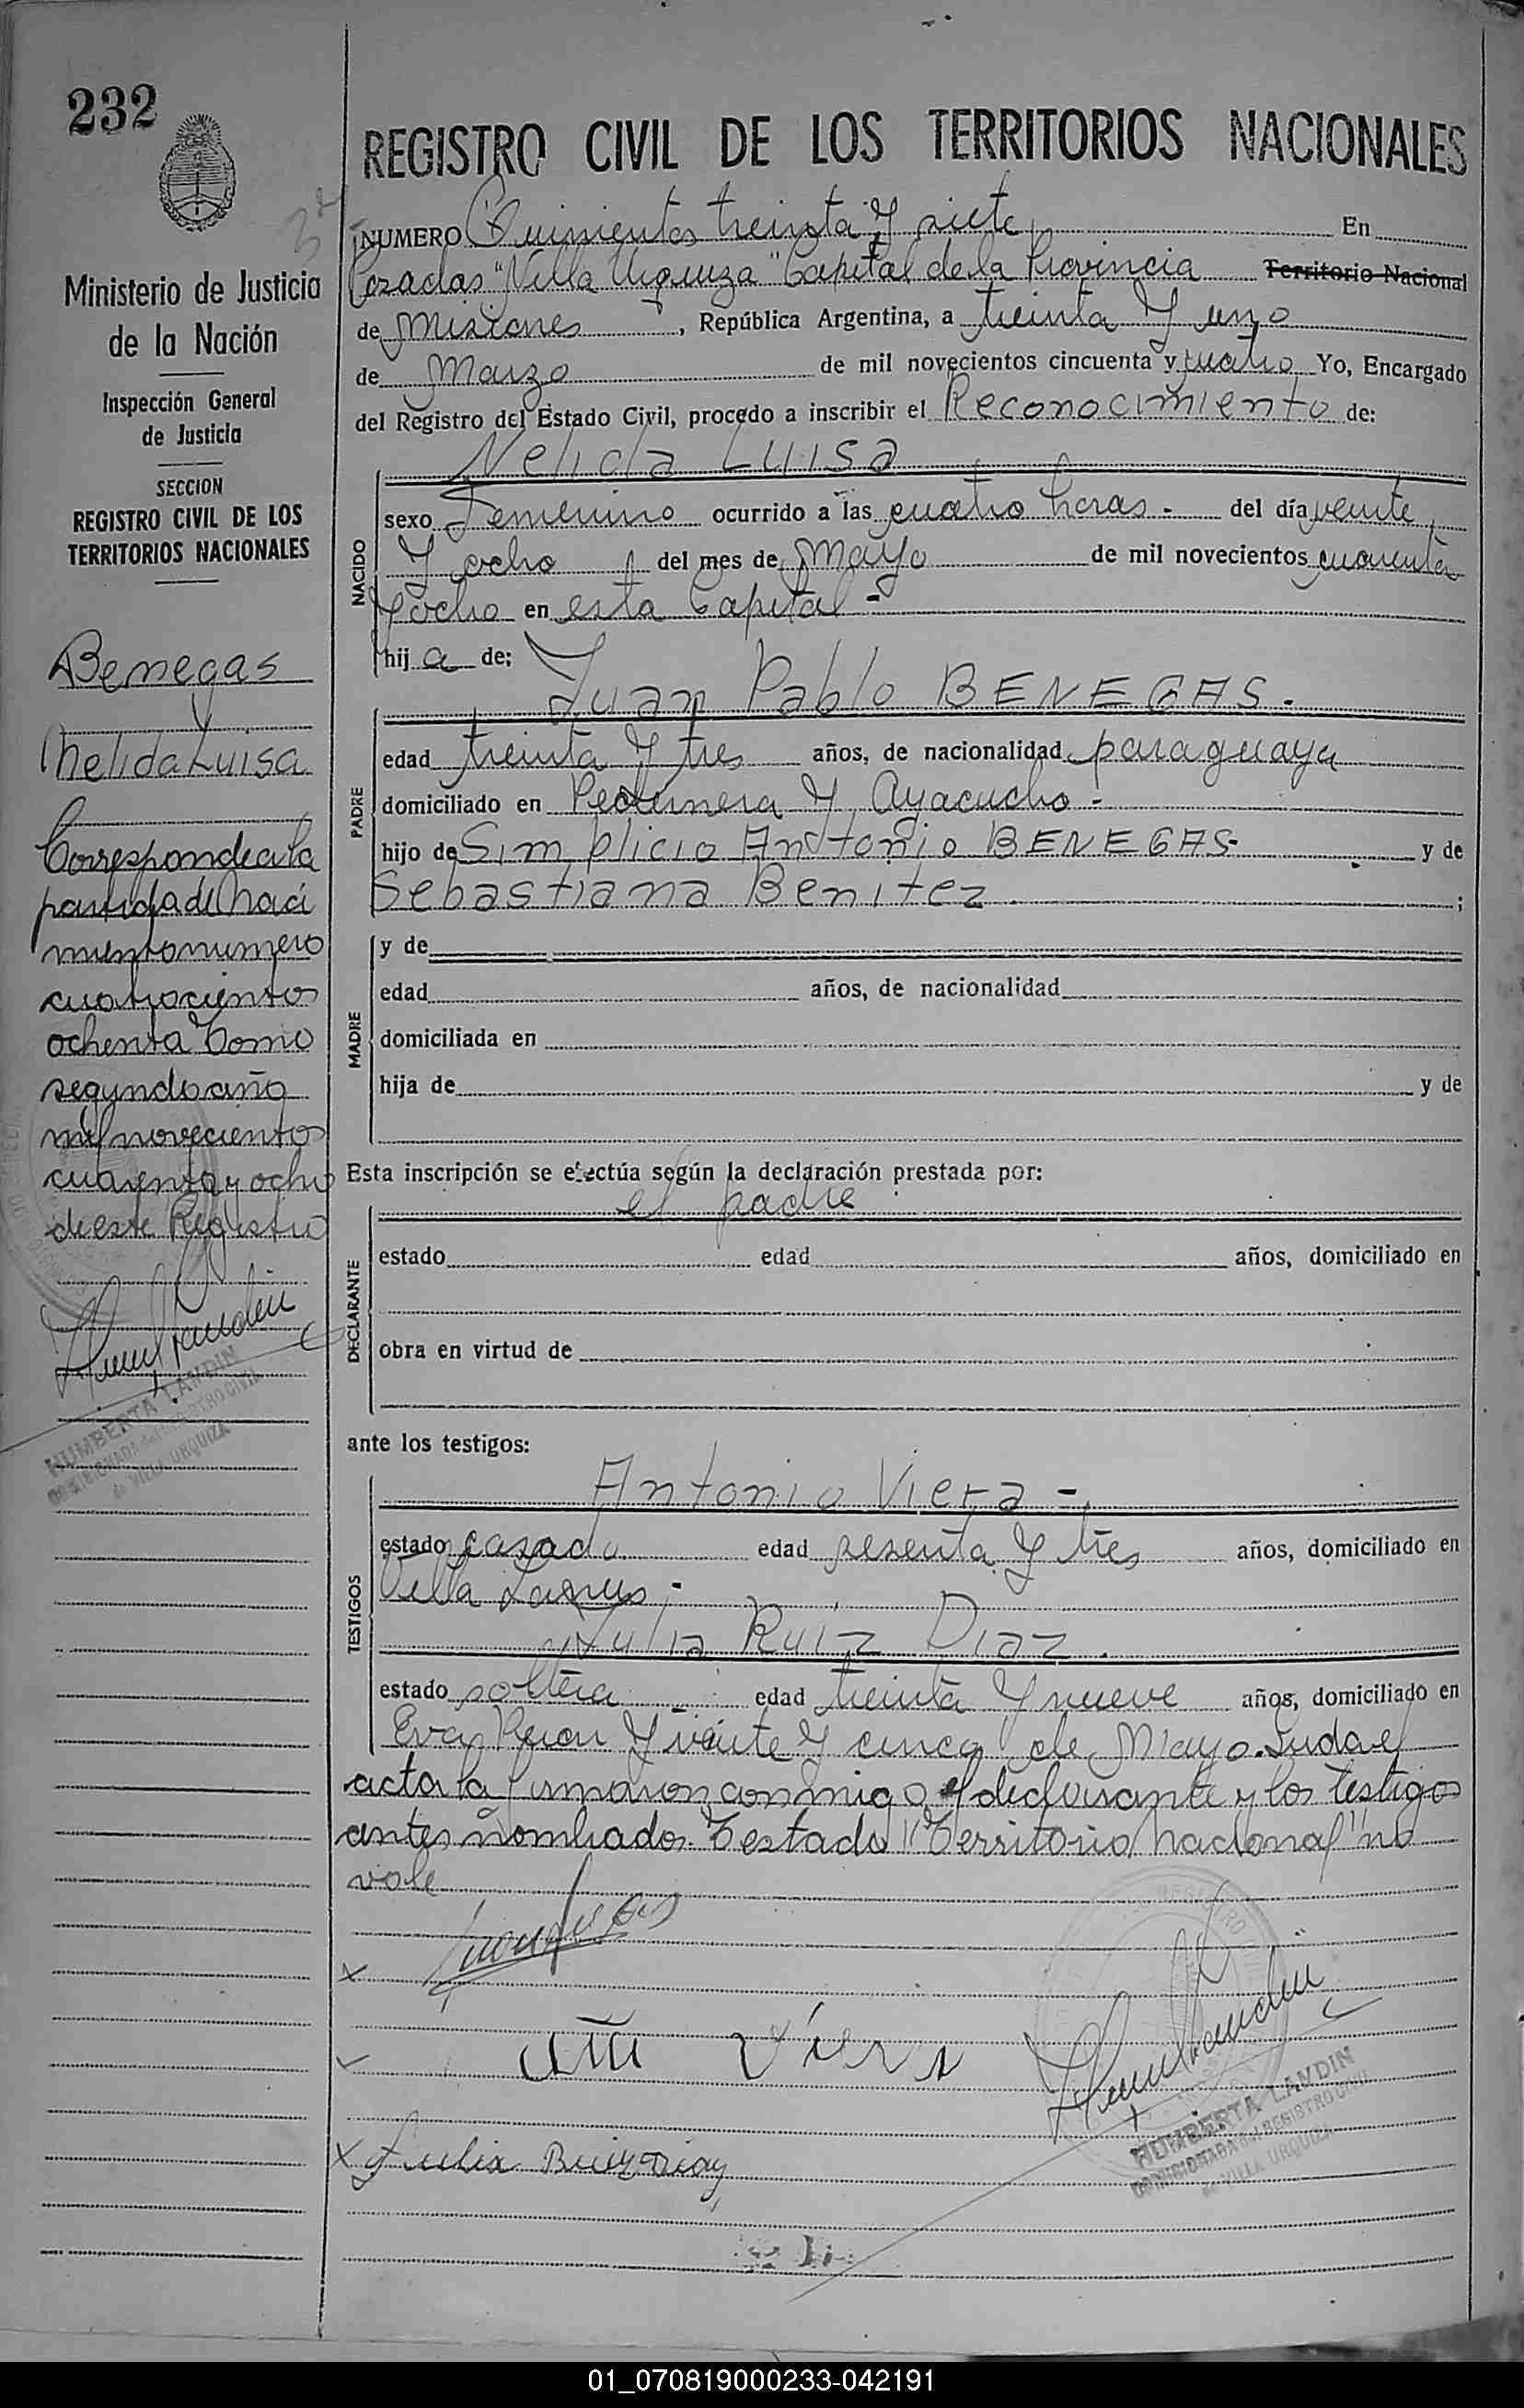 232
REGISTRO CIVIL DE LOS TERRITORIOS NACIONALES
Ministerio de Justicia
de la Nación
Inspección General
de Justicia
SECCION
REGISTRO CIVIL DE LOS
TERRITORIOS NACIONALES
Benegas
Nelida Luisa
Corresponde a la
partida de Naci
miento numero
cuatrocientos
ochenta Tomo
segundo año
mil novecientos
cuarenta y ocho
de este Registro
HUMBERTA LANDIN
COMISIONADA del REGISTRO CIVIL
de VILLA URQUIZA
NUMERO Quinientos treinta y siete En
Posadas "Villa Urquiza" Capital de la Provincia Territorio Nacional
de Misiones, República Argentina, a treinta y uno
de Marzo de mil novecientos cincuenta y cuatro Yo, Encargado
del Registro del Estado Civil, procedo a inscribir el Reconocimiento de:
NACIDO
Nelida Luisa
sexo Femenino ocurrido a las cuatro horas - del día veinte
y ocho del mes de Mayo de mil novecientos cuarenta
y ocho en esta Capital -
hij a de:
PADRE
Juan Pablo BENEGAS.
edad treinta y tres años, de nacionalidad paraguaya
domiciliado en Pedernera y Ayacucho -
hijo de Simplicio Antonio BENEGAS- y de
Sebastiana Benitez ;
MADRE
y de
edad años, de nacionalidad
domiciliada en
hija de y de
Esta inscripción se efectúa según la declaración prestada por:
DECLARANTE
el padre
estado edad años, domiciliado en
obra en virtud de
ante los testigos:
TESTIGOS
Antonio Viera -
estado casado edad sesenta y tres años, domiciliado en
Villa Lanus -
Julia Ruiz Diaz.
estado soltera edad treinta y nueve años, domiciliado en
Eva Peron y veinte y cinco de Mayo. Leida el
acta la firmaron conmigo el declarante y los testigos
antes nombrados. Testado "Territorio Nacional" no
vale
Viera
Julia Ruiz Diaz
HUMBERTA LANDIN
COMISIONADA del REGISTRO CIVIL
de VILLA URQUIZA
01_070819000233-042191